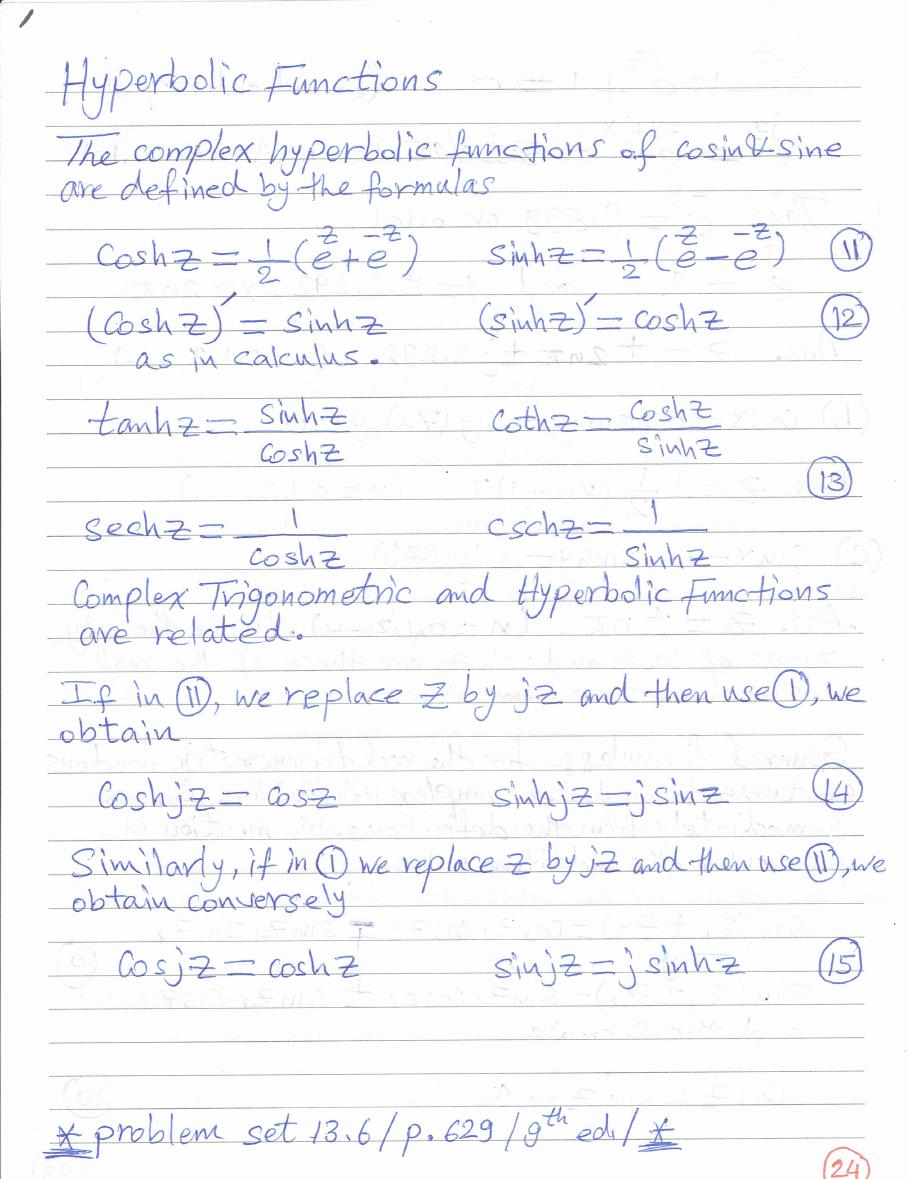 Hyperbolic Functions
The complex hyperbolic functions of cosin & sine
are defined by the formulas
Cosh z = 1/2 (e^z + e^-z)   Sinh z = 1/2 (e^z − e^-z)   (11)
(Cosh z)′ = Sinh z   (sinh z)′ = cosh z   (12)
as in calculus.
tanh z = Sinh z / Cosh z   Coth z = Cosh z / Sinh z
(13)
Sech z = 1 / Cosh z   csch z = 1 / Sinh z
Complex Trigonometric and Hyperbolic Functions
are related.
If in (11), we replace z by jz and then use (1), we
obtain
Cosh jz = cos z   sinh jz = j sin z   (14)
Similarly, if in (1) we replace z by jz and then use (11), we
obtain conversely
Cos jz = cosh z   sin jz = j sinh z   (15)
* problem set 13.6 / p. 629 / 9th ed. / *
(24)